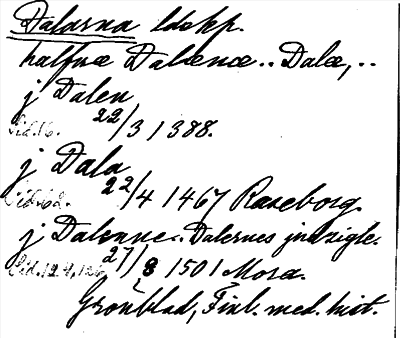 Dalarna ldskp.
halfuæ Dalænæ.. Dalæ,..
j Dalen
Cit.16. 22/3 1388.
j Dala
Cit.62. 22/4 1467 Raseborg.
j Dalenne.. Dalernes jnczigle.
Cit.124,126 27/8 1501 Mora.
Grönblad, Finl. med. hist.